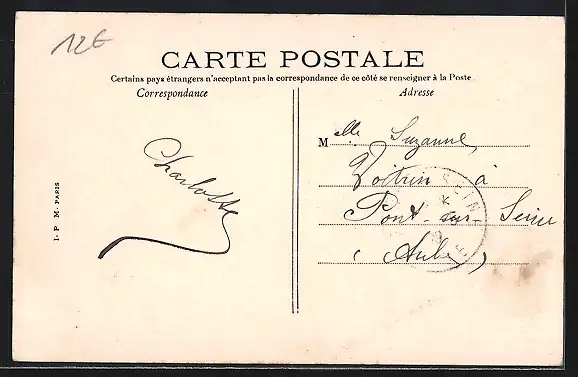 12€
CARTE POSTALE
Certains pays étrangers n'acceptant pas la correspondance de ce côté se renseigner à la Poste
Correspondance
Adresse
Charlotte
Melle Suzanne
Voitrin à
Pont-sur-Seine
(Aube)
I. P. M. PARIS